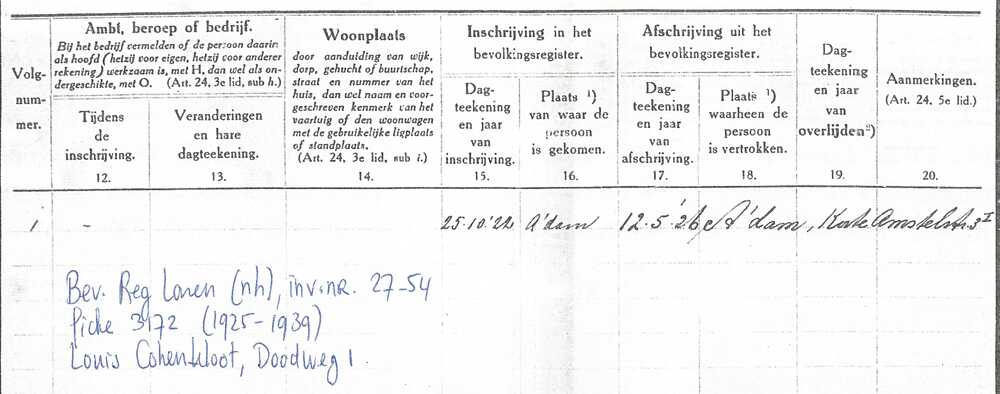 Volg-
num-
mer.
Ambt, beroep of bedrijf.
Bij het bedrijf vermelden of de persoon daarin
als hoofd (hetzij voor eigen, hetzij voor anderer
rekening) werkzaam is, met H, dan wel als on-
dergeschikte, met O. (Art. 24, 3e lid, sub h.)
Tijdens
de
inschrijving.
12.
Veranderingen
en hare
dagteekening.
13.
Woonplaats
door aanduiding van wijk,
dorp, gehucht of buurtschap,
straat en nummer van het
huis, dan wel naam en voor-
geschreven kenmerk van het
vaartuig of den woonwagen
met de gebruikelijke ligplaats
of standplaats.
(Art. 24, 3e lid, sub i.)
14.
Inschrijving in het
bevolkingsregister.
Dag-
teekening
en jaar
van
inschrijving.
15.
Plaats ¹)
van waar de
persoon
is gekomen.
16.
Afschrijving uit het
bevolkingsregister.
Dag-
teekening
en jaar
van
afschrijving.
17.
Plaats ¹)
waarheen de
persoon
is vertrokken.
18.
Dag-
teekening
en jaar
van
overlijden²)
19.
Aanmerkingen.
(Art. 24, 5e lid.)
20.
1 - 25.10.'22 A'dam 12.5.'26 A'dam, Korte Amstelstr. 3 I
Bev. Reg Loenen (nh), inv.nr. 27-54
fiche 3172 (1925-1939)
Louis Cohen Kloot, Doodweg 1.